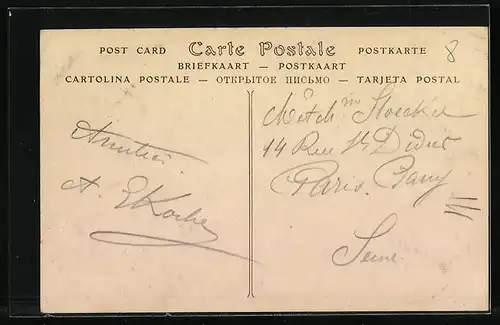 POST CARD Carte Postale POSTKARTE
BRIEFKAART — POSTKAART
CARTOLINA POSTALE — ОТКРЫТОЕ ПИСЬМО — TARJETA POSTAL
8
Amitiés.
A.
14 Rue St Didier
Paris.
Seine